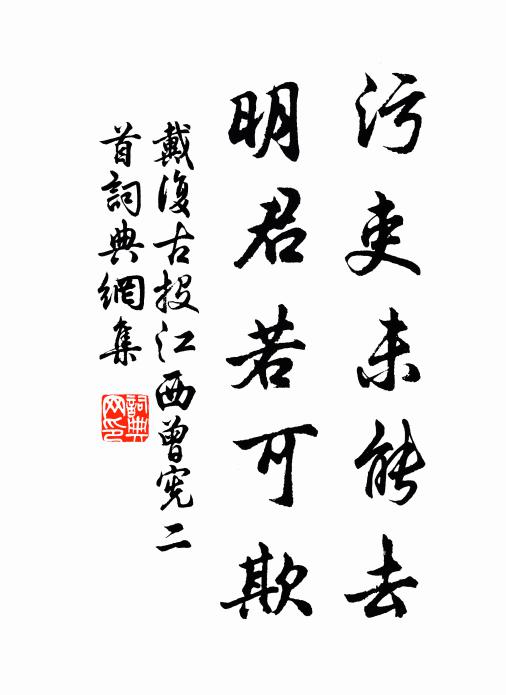 污吏未能去
明君若可欺
戴復古投江西曾宪二
首詞典網集
詞典
网印